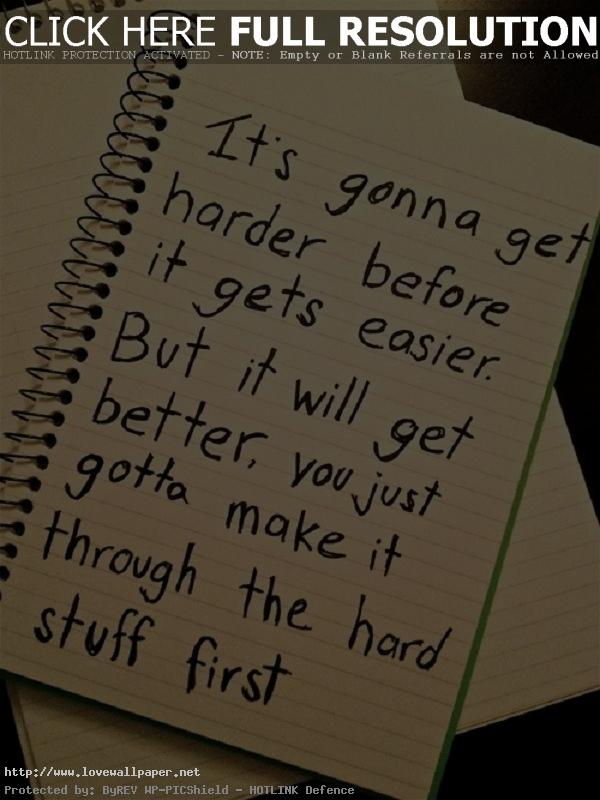 CLICK HERE FULL RESOLUTION
HOTLINK PROTECTION ACTIVATED - NOTE: Empty or Blank Referrals are not Allowed
It's gonna get
harder before
it gets easier.
But it will get
better, you just
gotta make it
through the hard
stuff first
http://www.lovewallpaper.net
Protected by: ByREV WP-PICShield - HOTLINK Defence